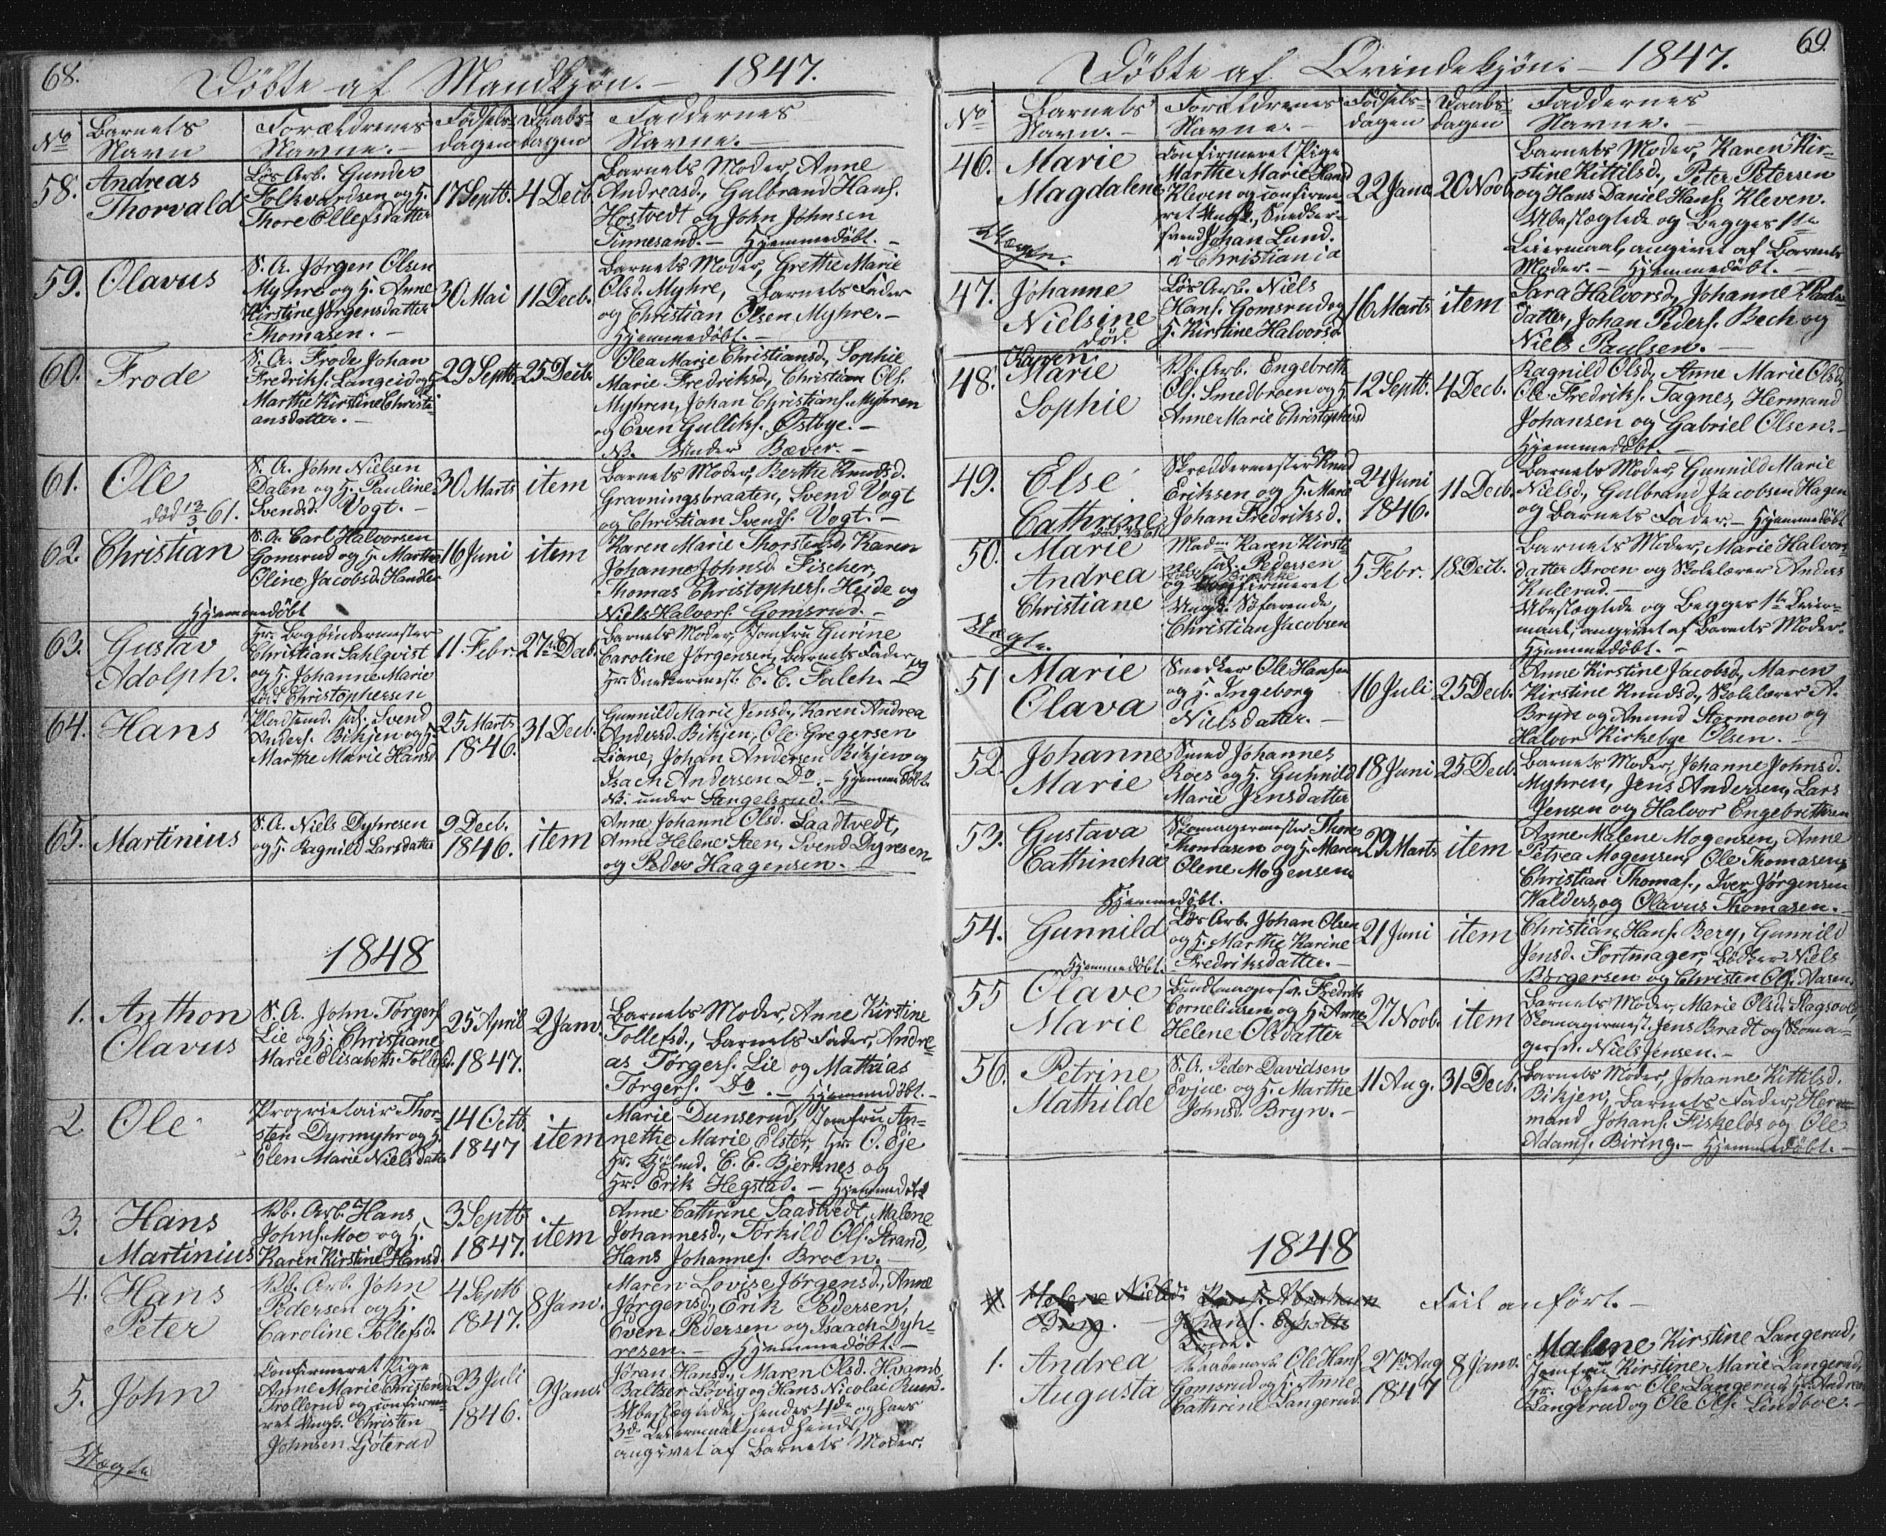 68.
Døbte af Mandkjøn. — 1847.
No Barnets Navn
Forældrenes Navne. —
Fødselsdagen
Daabsdagen
Faddernes Navne. —
58. Andreas
Thorvald
Løs Arb. Gunder
Folkvardsen og H.
Thore Ellefsdatter
17 Septb. 4 Decb.
Barnets Moder, Anne
Andreasd., Gulbrand Hans.
Hostvedt og John Johnsen
Tinnesand. — Hjemmedøbt. —
59. Olavus
S. A. Jørgen Olsen
Myhre og H. Anne
Kirstine Jørgensdatter
Thomasen. —
30 Mai 11 Decb.
Barnets Moder, Grethe Marie
Olsd. Myhre, Barnets Fader
og Christian Olsen Myhre. —
Hjemmedøbt. —
60. Frode
S. A. Frode Johan
Fredriks. Langeid og H.
Marthe Kirstine Christi-
ansdatter. —
29 Septb. 25 Decb.
Olea Marie Christiansd., Sophie
Marie Fredriksd., Christian Ols.
Myhren, Johan Christians. Myhren
og Even Gulliks. Østbye. —
No. Under Bæver. —
61. Ole
død 12/3 61.
S. A. John Nielsen
Dalen og H. Pauline
Svendsd. Vogt. —
30 Marts item
Barnets Moder, Berthe Knudsd.
Gravningsbraaten, Svend Vogt
og Christian Svends. Vogt. —
62. Christian
S. A. Carl Halvorsen
Gomsrud og H. Marthe
Oline Jacobsd. Handler
Hjemmedøbt
16 Juni item
Karen Marie Thorstensd., Karen
Johanne Johnsd. Fischer,
Thomas Christophers. Heide og
Niels Halvors. Gomsrud. —
63. Gustav
Adolph.
Hr. Bogbindermester
Christian Sahlqvist
og H. Johanne Marie
født Christophersen
11 Febr. 27de Decb.
Barnets Moder, Jomfru Gurine
Caroline Jørgensen, Barnets Fader, og
Hr. Snedkermest. C. C. Faleh. —
64. Hans
Pladsmd. Svend
Anders. Bikjen og H.
Marthe Marie Hansd.
25 Marts
1846. 31 Decb.
Gunnild Marie Jensd., Karen Andrea
Andersd. Bikjen, Ole Gregersen
Liane, Johan Andersen Bikjen og
Isach Andersen Do. — Hjemmedøbt.
No. under Langelsrud. —
65. Martinius
S. A. Niels Dyhresen
og H. Ragnild Larsdatter
9 Decb.
1846. item
Anne Johanne Olsd. Saadtvedt,
Anne Helene Steen, Svend Dyresen
og Peder Haagensen. —
1848
1. Anthon
Olavus
S. A. John Torgers.
Lie og H. Christiane
Marie Elisabeth Tollefsd.
25 April
1847. 2 Janv.
Barnets Moder, Anne Kirstine
Tollefsd., Barnets Fader, Andre-
as Torgers. Lie og Mathias
Torgers. Do. — Hjemmedøbt. —
2 Ole
Proprietair Thor-
sten Dyrmyhr og H.
Elen Marie Nielsdatter
14 Octb.
1847 item
Marie Dunserud, Jomfru An-
nethe Marie Elster, Hr. O. Eje
Hr. Kjøbmd. C. C. Bjerknes og
Hr. Erik Hegstad. — Hjemmedøbt
3. Hans
Martinius
Vb. Arb. Hans
Johns. Moe og H.
Karen Kirstine Hansd.
3 Septb
1847. item
Anne Cathrine Saadtvedt, Malene
Johannesd., Torkild Ols. Strand,
Hans Johannes. Broen. —
4. Hans
Peter
Vb. Arb. John
Pedersen og H.
Caroline Tollefsd.
4 Septb
1847. 8 Janv.
Maren Lovise Jørgensd., Anne
Jørgensd., Erik Pedersen,
Even Pedersen og Isaach Dyh-
resen. — Hjemmedøbt. —
5. John
Uægte
Confirmeret Pige
Anne Marie Christensd.
Trollerud og confirme-
ret Ungk. Christen
Johnsen Gjøterud
23 Juli
1846. 9 Janv.
Jøran Hansd., Maren Olsd. Hvams.
Baltzer Løvig og Hans Nicolai Knuds.
Ubeslægtede, hendes 4de og hans
3de Leiermaal med hende,
angivet af Barnets Moder.
69.
Døbte af Qvindekjøn. — 1847.
No Barnets Navn. —
Forældrenes Navne. —
Fødselsdagen
Daabsdagen
Faddernes Navne. —
46. Marie
Magdalene
Uægte.
Confirmeret Pige
Marthe Marie Hansd.
Kleven og confirme-
ret Ungk., Snedker-
svend Johan Lund.
i Christiania
22 Janv. 20 Novb.
Barnets Moder, Karen Kir-
stine Kittilsd., Peter Petersen
og Hans Daniel Hans. Kleven.
Ubeslægtede og Begges 1ste
Leiermaal, angivet af Barnets
Moder. — Hjemmedøbt. —
47. Johanne
Nielsine
død.
Løs Arb. Niels
Hans. Gomsrud og
H. Kirstine Halvorsd.
16 Marts item
Sara Halvorsd., Johanne Pauls-
datter, Johan Peders. Bech og
Niels Paulsen. —
48. Karen
Marie
Sophie
Vb. Arb. Engebreth
Ols. Smedbroen og H.
Anne Marie Christophersd.
12 Septb. 4 Decb.
Ragnild Olsd., Anne Marie Olsd.,
Ole Fredriks. Tagnes, Hermand
Johansen og Gabriel Olsen. —
Hjemmedøbt. —
49. Else
Cathrine
Skræddermester Knud
Eriksen og H. Marie
Johan Fredriksd.
24 Juni
1846. 11 Decb.
Barnets Moder, Gunnild Marie
Nielsd., Gulbrand Jacobsen Hagen
og Barnets Fader. — Hjemmedøbt
50. Marie
Andrea
Christiane
Uægte.
Mad. Karen Kirsti-
ne Pedersen
og confirmeret
Ungk. Søfarende,
Christian Jacobsen
5 Febr. 18 Decb.
Barnets Moder, Marie Halvors-
datter Broen og Skolelærer Anders
Kulerud. —
Ubeslægtede og Begges 1ste Leier-
maal, angivet af Barnets Moder.
Hjemmedøbt. —
51 Marie
Olava
Snedker Ole Hansen
og H. Ingeborg
Nielsdatter. —
16 Juli 25 Decb.
Anne Kirstine Jacobsd., Maren
Kirstine Knudsd., Skolelærer A.
Bryn og Amund Stormoen og
Halvor Kirkebye Olsen. —
52. Johanne
Marie
Smed Johannes
Roes og H. Gunnild
Marie Jensdatter
18 Juni 25 Decb.
Barnets Moder, Johanne Johnsd.
Myhren, Jens Andersen, Lars
Jensen og Halvor Engebrethsen
53. Gustava
Cathincha
Hjemmedøbt.
Skomagermester Thore
Thomasen og H. Maren
Olene Mogensen
29 Marts item
Anne Malene Mogensen, Anne
Petrea Mogensen, Ole Thomasen,
Christian Thomas., Iver Jørgensen
Walders, og Olavus Thomasen. —
54. Gunnild
Hjemmedøbt.
Løs Arb. Johan Olsen
og H. Marthe Karine
Fredriksdatter. —
21 Juni item
Christian Hans. Berg, Gunnild
Jensd. Fortmager, Bødker Niels
Børgersen og Christen Ols. Aasen.
55 Olave
Marie
Bundtmagersv. Fredrik
Corneliusen og H. Anne
Helene Olsdatter
27 Novb. item
Barnets Moder, Marie Olsd. Hagsvold,
Skomagermest. Jens Bradt og Skoma-
gersv. Niels Jensen. —
56. Petrine
Mathilde
S. A. Peder Davidsen
Evjue og H. Marthe
Johnsd. Bryn. —
11 Aug. 31 Decb.
Barnets Moder, Johanne Kittilsd.
Bikjen, Barnets Fader, Her-
mand Johans. Fiskeløs og Ole
Adams. Biring. — Hjemmedøbt. —
1848
Helene Nielsd. Abraham Feil anført. —
Berg. —
1. Andrea
Augusta
Ole Hans.
Gomsrud og H. Anne
Cathrine Langerud.
27de Aug
1847 8 Janv.
Malene Kirstine Langerud,
Jomfru Kirstine Marie Langerud,
Ole Langerud, Hr. Andreas
Langerud og Ole Ols. Lindboe. —